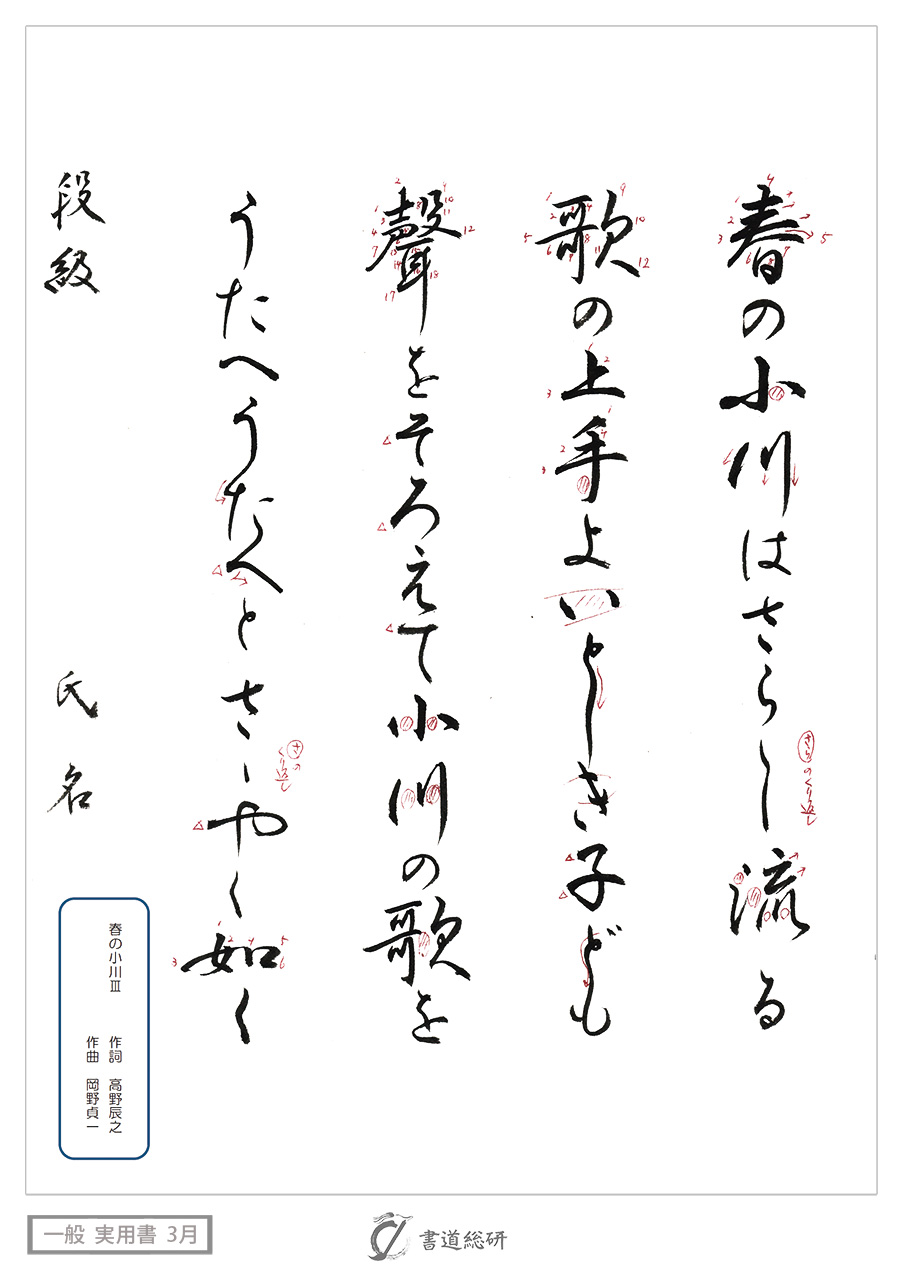 春の小川はさら〱流る
歌の上手よいとしき子ども
聲をそろえて小川の歌を
うたへうたへとさゝやく如く
段級 氏名
さらのくり返し
さのくり返し
春の小川Ⅲ 作詞 高野辰之
作曲 岡野貞一
一般 実用書 3月
書道総研